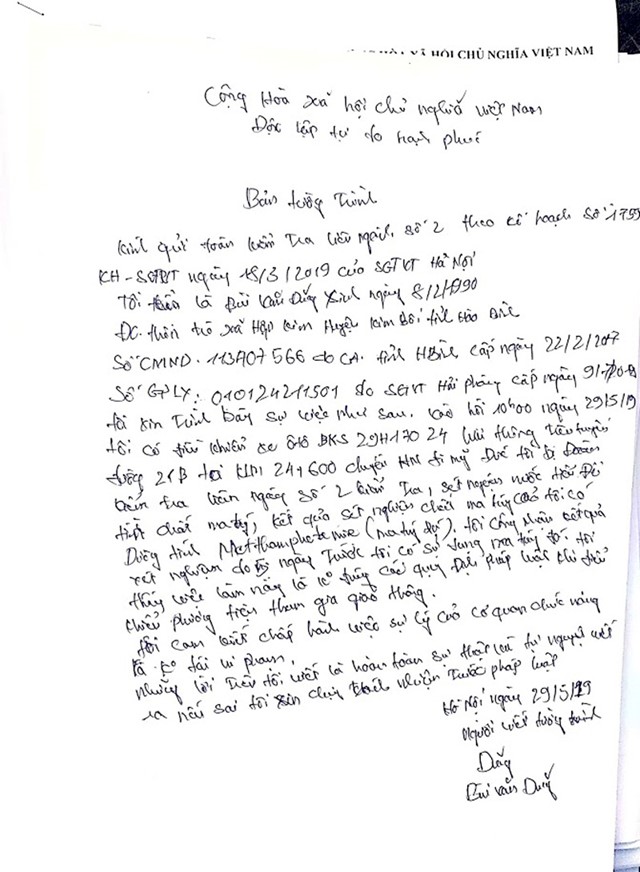 XÃ HỘI CHỦ NGHĨA VIỆT NAM
Cộng Hòa xã hội chủ nghĩa việt Nam
Độc lập tự do hạnh phúc
Bản tường Trình
kính gửi đoàn kiểm Tra liên ngành số 2 theo kế hoạch số 1755
KH - SGTVT ngày 18/3/2019 của SGTVT Hà Nội
Tôi tên là Bùi Văn Dũng Sinh ngày 8/2/1990
ĐC. thôn trò xã Hợp kim Huyện kim Bôi tỉnh Hòa Bình
Số CMND. 113707566 do CA. tỉnh HBình cấp ngày 22/2/2017
Số GPLX: 010124211501 do SGTVT Hải phòng cấp ngày
tôi xin Trình bày sự việc như sau. Vào hồi 10h00 ngày 29/5/19
tôi có điều khiển xe ôtô BKS 29H170 24 lưu thông Trên tuyến
đường 21B tại KM 24+600 chuyến HN đi mỹ Đức tôi bị Đoàn
kiểm tra liên ngành số 2 kiểm Tra, xét nghiệm nước tiểu Để
tìm chất ma túy, kết quả xét nghiệm chất ma túy của tôi có
Dương tính Methamphetamie (ma túy đá). tôi công nhận kết quả
xét nghiệm do ngày Trước tôi có sử dụng ma túy đá tôi
thấy việc làm này là ko đúng các quy Định pháp luật khi điều
khiển phương tiện tham gia giao thông.
tôi cam kết chấp hành việc sử lý của cơ quan chức năng
và ko tái vi phạm.
những lời Trên tôi viết là hoàn toàn sự thật và tự nguyện viết
ra nếu sai tôi xin chịu trách nhiệm Trước pháp luật
Hà Nội ngày 29/5/19
người viết tường trình
Dũng
Bùi văn Dũng